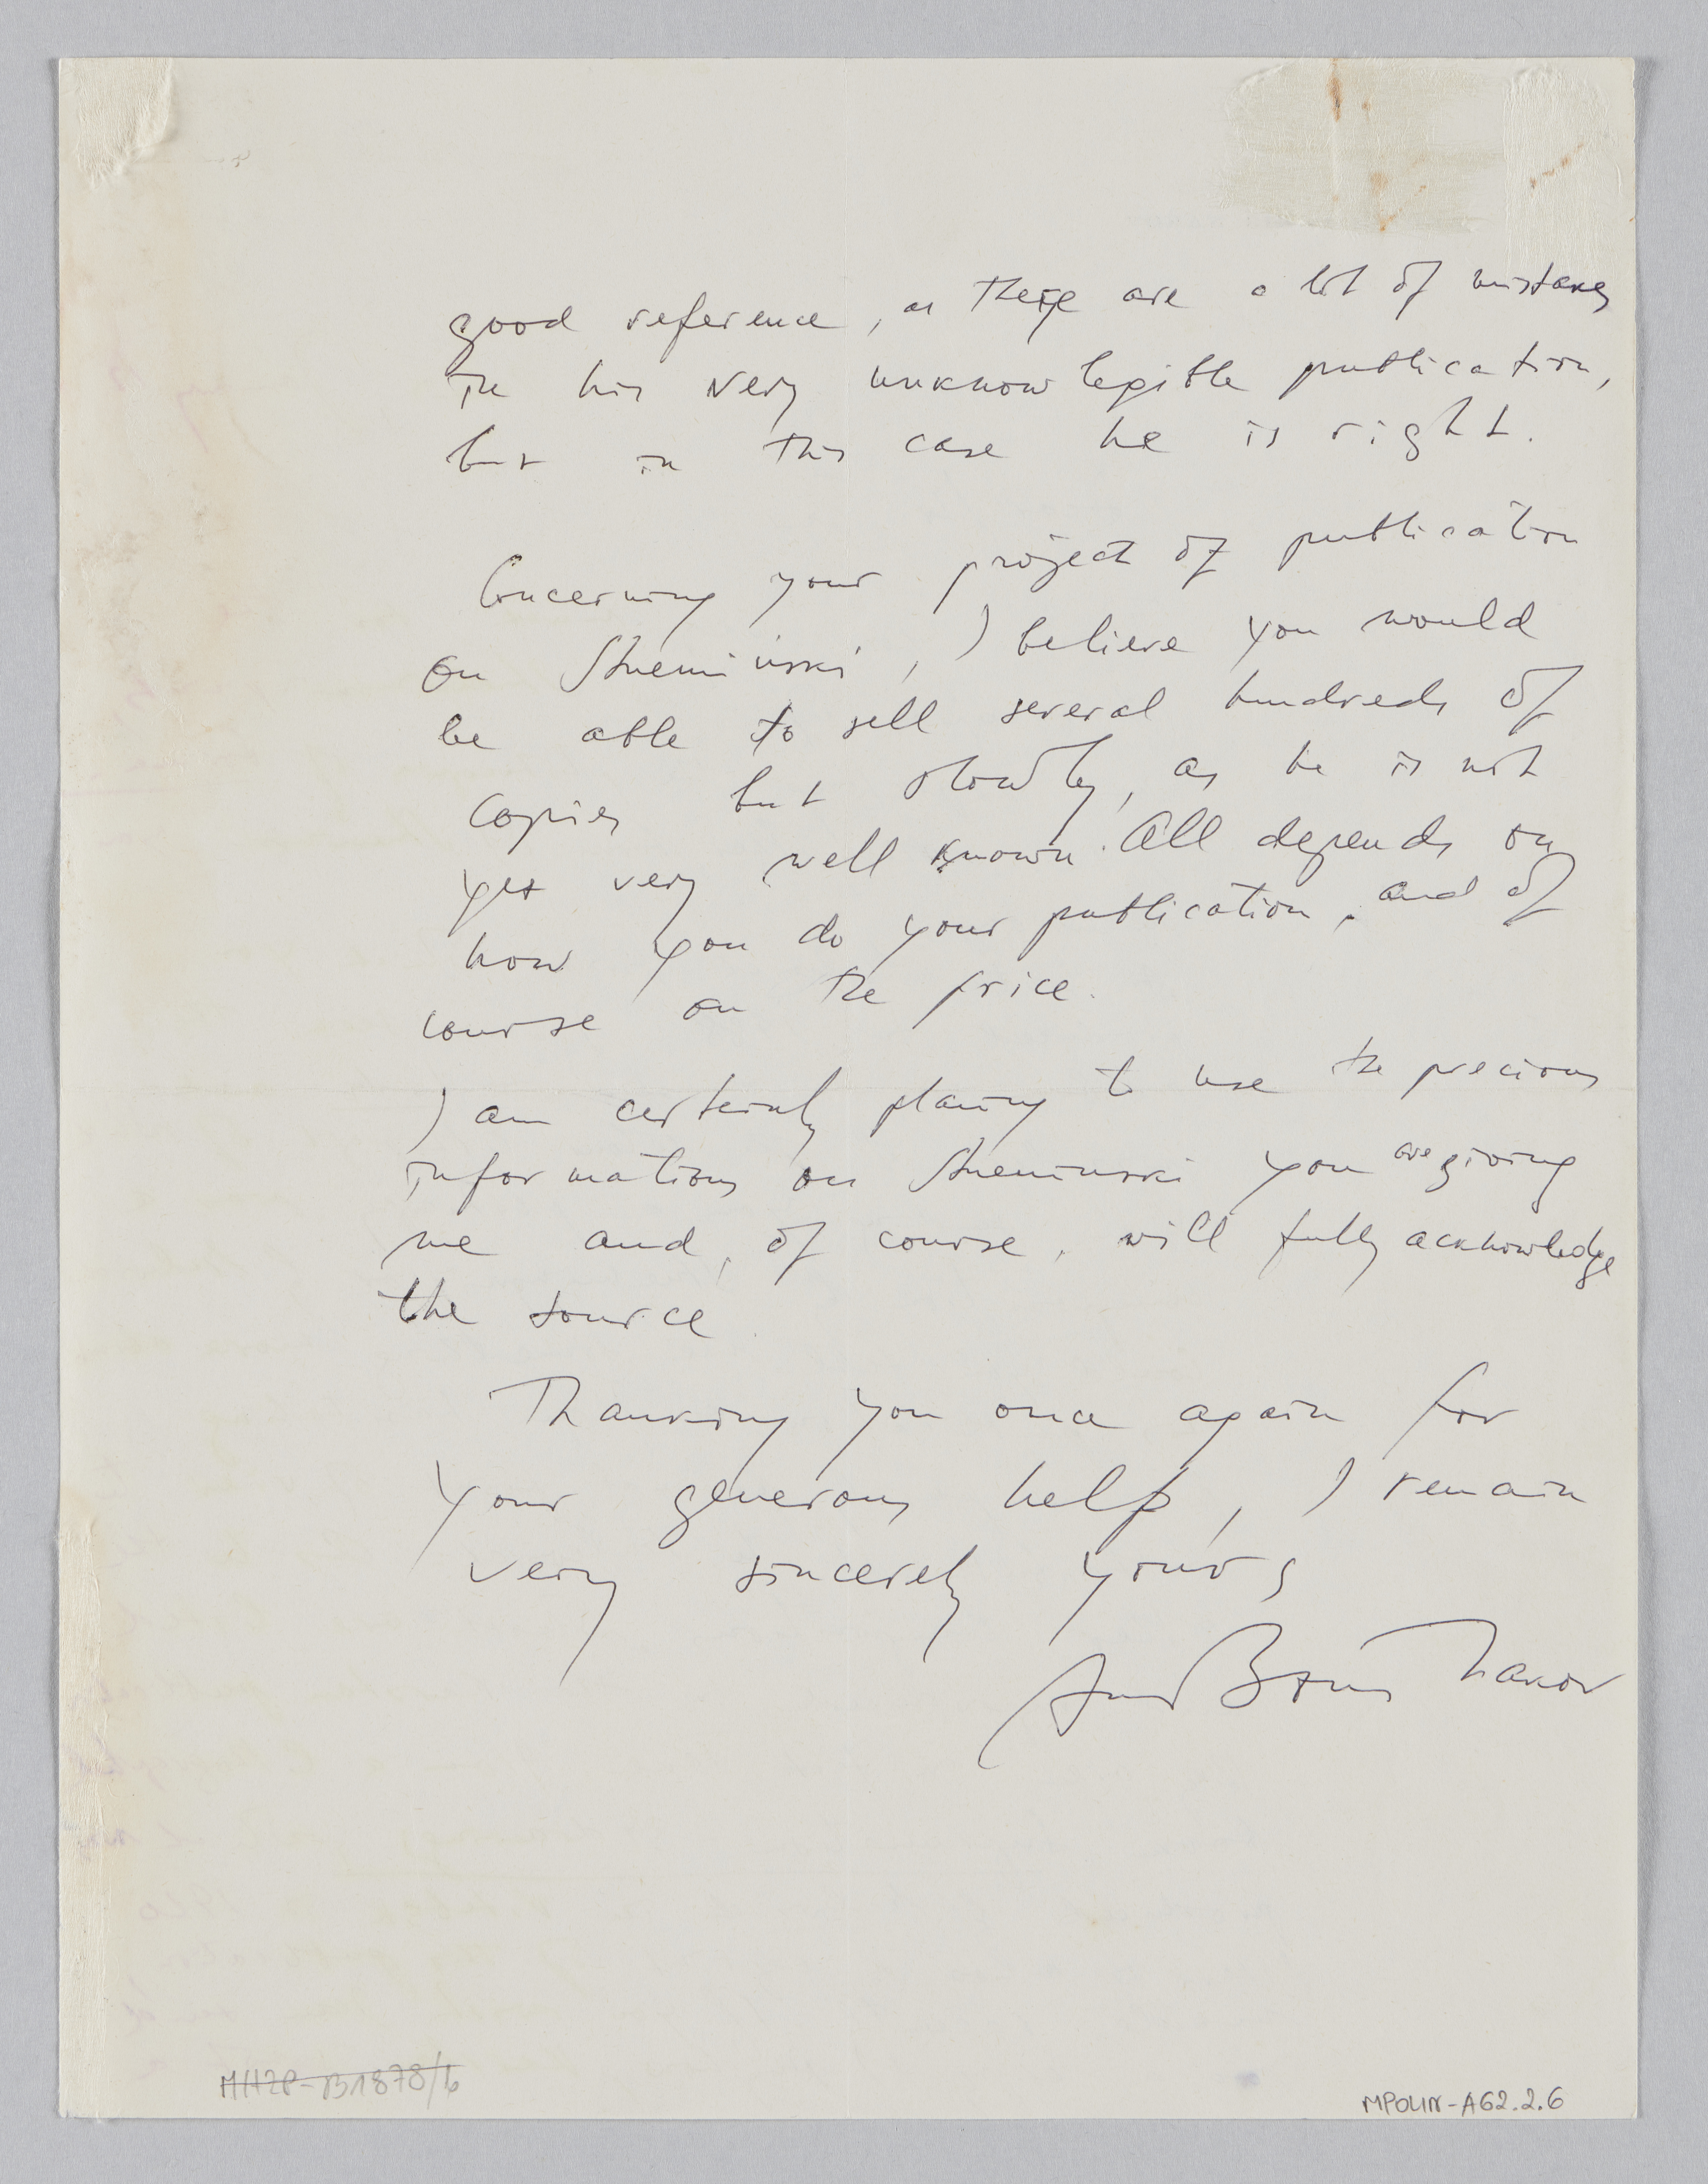 good reference, as there are a lot of mistakes
in his very unknowlegible publication,
but in this case he is right.
Concerning your project of publication
on Strzeminski, I believe you would
be able to sell several hundreds of
copies but slowly, as he is not
yet very well known. All depends on
how you do your publication, and of
course on the price.
I am certainly planing to use the precious
informations on Strzeminski you are giving
me and, of course, will fully acknowledge
the source.
Thanking you once again for
your generous help, I remain
very sincerely yours
Nakov
MHŻP-B1878/6
MPOLIN-A62.2.6